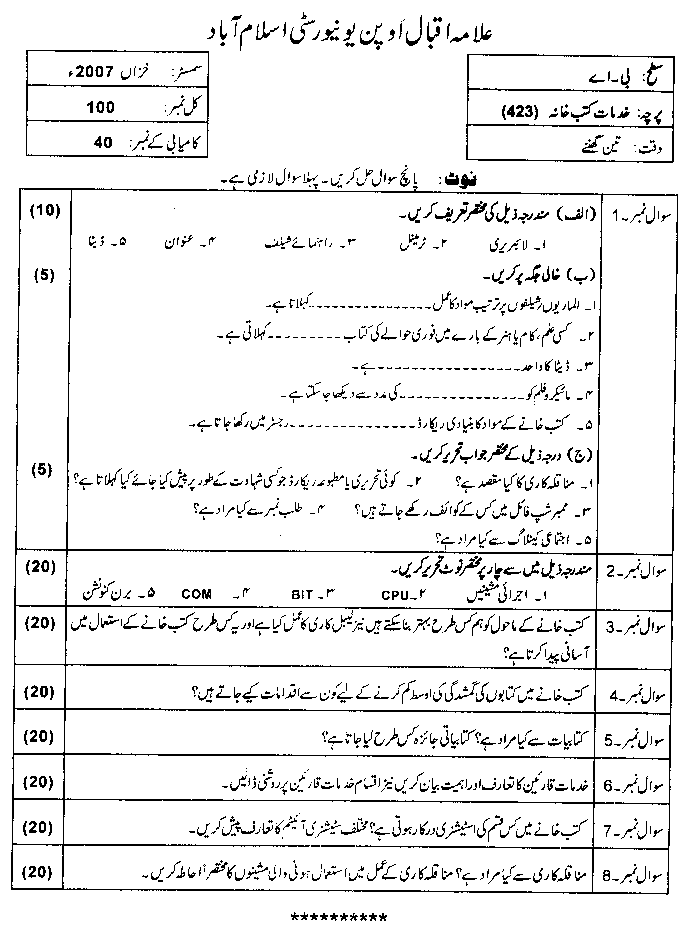 علامہ اقبال اوپن یونیورسٹی اسلام آباد
سطح: بی۔اے
پرچہ: خدمات کتب خانہ (423)
وقت: تین گھنٹے
سمسٹر: خزاں 2007ء
کل نمبر: 100
کامیابی کے نمبر: 40
نوٹ: پانچ سوال حل کریں۔ پہلا سوال لازمی ہے۔
سوال نمبر۔1 (الف) مندرجہ ذیل کی مختصر تعریف کریں۔ (10)
۱۔ لائبریری ۲۔ ٹرمینل ۳۔ راہنمائے شیلف ۴۔ عنوان ۵۔ ڈیٹا
(ب) خالی جگہ پر کریں۔ (5)
۱۔ الماریوں رشیلفوں پر ترتیب مواد کا عمل ________________ کہلاتا ہے۔
۲۔ کسی علم، کام یا ہنر کے بارے میں فوری حوالے کی کتاب ________ کہلاتی ہے۔
۳۔ ڈیٹا کا واحد ________________ ہے۔
۴۔ مائیکروفلم کو ________________ کی مدد سے دیکھا جا سکتا ہے۔
۵۔ کتب خانے کے مواد کا بنیادی ریکارڈ ________________ رجسٹر میں رکھا جاتا ہے۔
(ج) درجہ ذیل کے مختصر جواب تحریر کریں۔ (5)
۱۔ مناقلہ کاری کا کیا مقصد ہے؟ ۲۔ کوئی تحریری یا مطبوعہ ریکارڈ جو کسی شہادت کے طور پر پیش کیا جائے کیا کہلاتا ہے؟
۳۔ ممبر شپ فائل میں کس کے کوائف رکھے جاتے ہیں؟ ۴۔ طلب نمبر سے کیا مراد ہے؟
۵۔ اجتماعی کیٹلاگ سے کیا مراد ہے؟
سوال نمبر۔2 مندرجہ ذیل میں سے چار پر مختصر نوٹ تحریر کریں۔ (20)
۱۔ اجرائی مشینیں ۲۔ CPU ۳۔ BIT ۴۔ COM ۵۔ برن کنونشن
سوال نمبر۔3 کتب خانے کے ماحول کو ہم کس طرح بہتر بنا سکتے ہیں نیز لیبل کاری کا عمل کیا ہے اور یہ کس طرح کتب خانے کے استعمال میں (20)
آسانی پیدا کرتا ہے؟
سوال نمبر۔4 کتب خانے میں کتابوں کی گمشدگی کی اوسط کم کرنے کے لیے کون سے اقدامات کیے جاتے ہیں؟ (20)
سوال نمبر۔5 کتابیات سے کیا مراد ہے؟ کتابیاتی جائزہ کس طرح کیا جاتا ہے؟ (20)
سوال نمبر۔6 خدمات قارئین کا تعارف اور اہمیت بیان کریں نیز اقسام خدمات قارئین پر روشنی ڈالیں۔ (20)
سوال نمبر۔7 کتب خانے میں کس قسم کی اسٹیشنری درکار ہوتی ہے؟ مختلف سٹیشنری آئیٹم کا تعارف پیش کریں۔ (20)
سوال نمبر۔8 مناقلہ کاری سے کیا مراد ہے؟ مناقلہ کاری کے عمل میں استعمال ہونی والی مشینوں کا مختصراً احاطہ کریں۔ (20)
**********